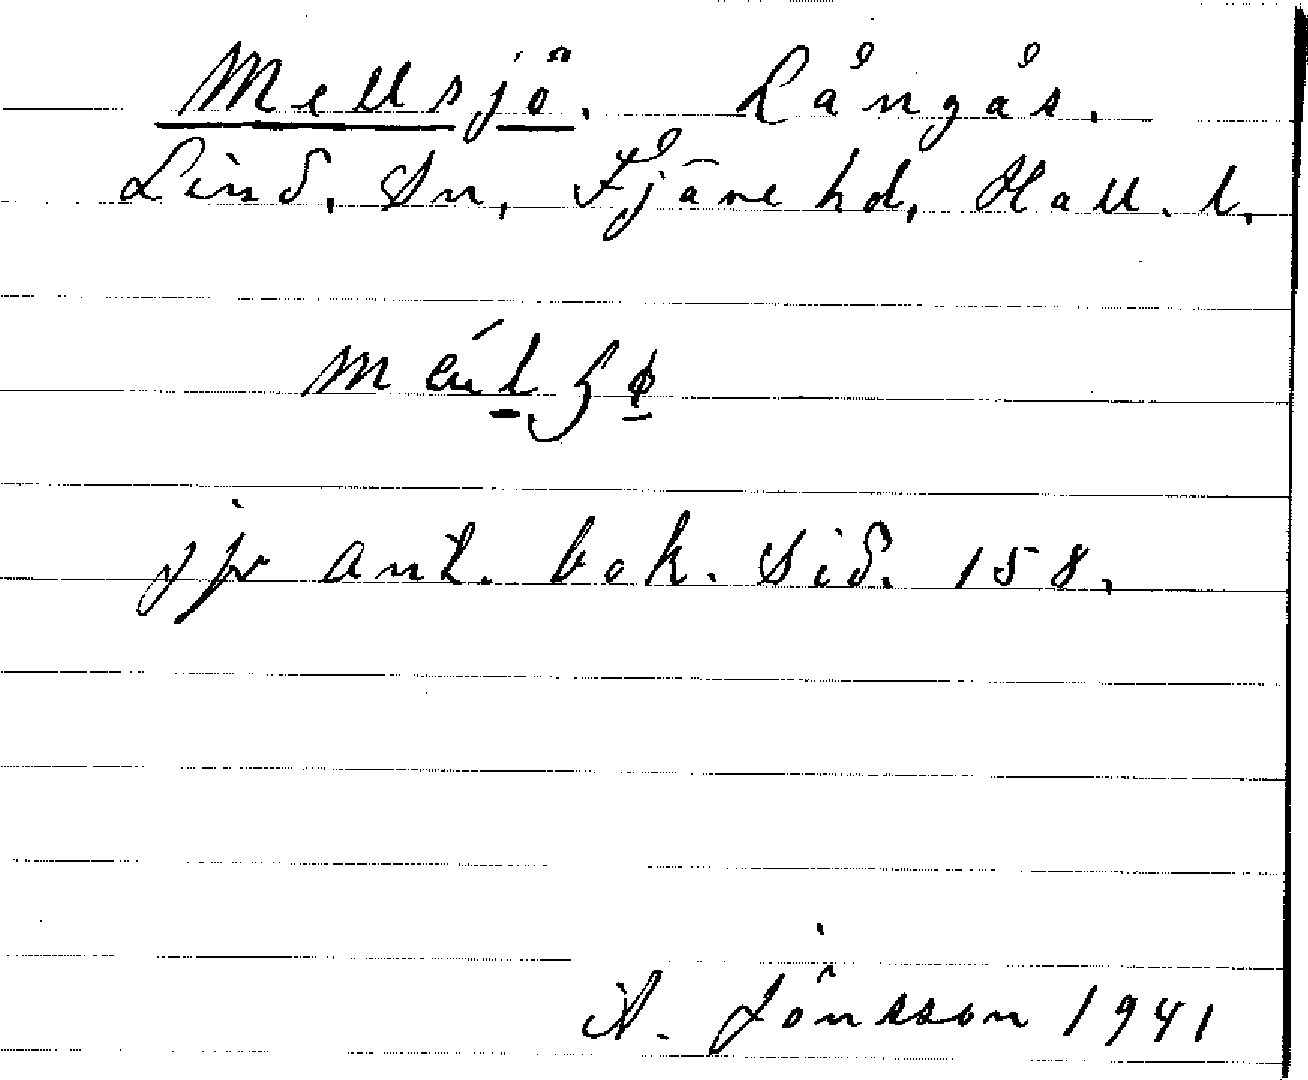 Mellsjö. Långås.
Lind. Sn, Fjäre hd, Hall. l.
jfr ant. bok. Sid. 158.
A. Jönsson 1941